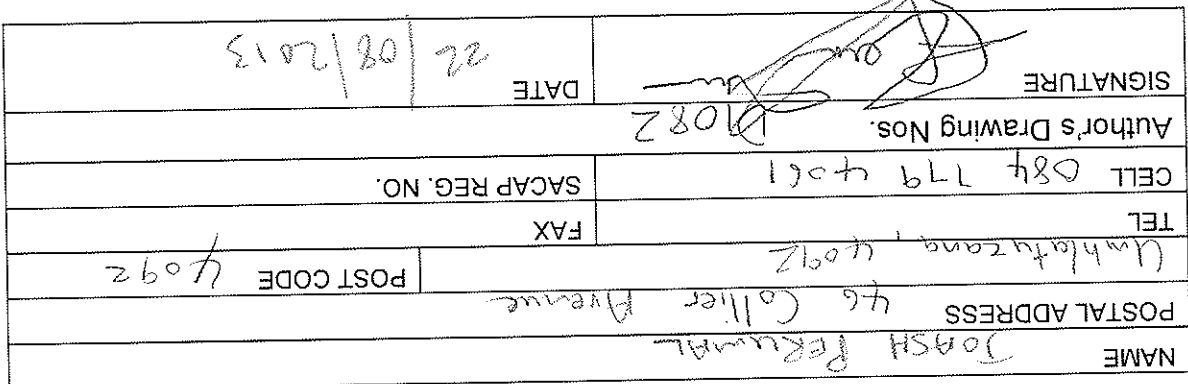 NAME JOASH PERUMAL
POSTAL ADDRESS 46 Collier Avenue
Umhlatuzana, 4092 POST CODE 4092
TEL FAX
CELL 084 779 4061 SACAP REG. NO.
Author's Drawing Nos. D1082
SIGNATURE DATE 22/08/2013